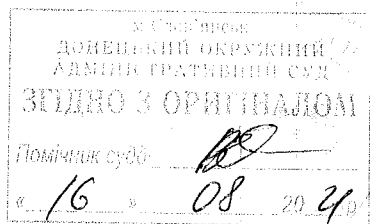 м. Слов'янськ
ДОНЕЦЬКИЙ ОКРУЖНИЙ
АДМІНІСТРАТИВНИЙ СУД
ЗГІДНО З ОРИГІНАЛОМ
Помічник судді
« 16 » 08 20 21 р